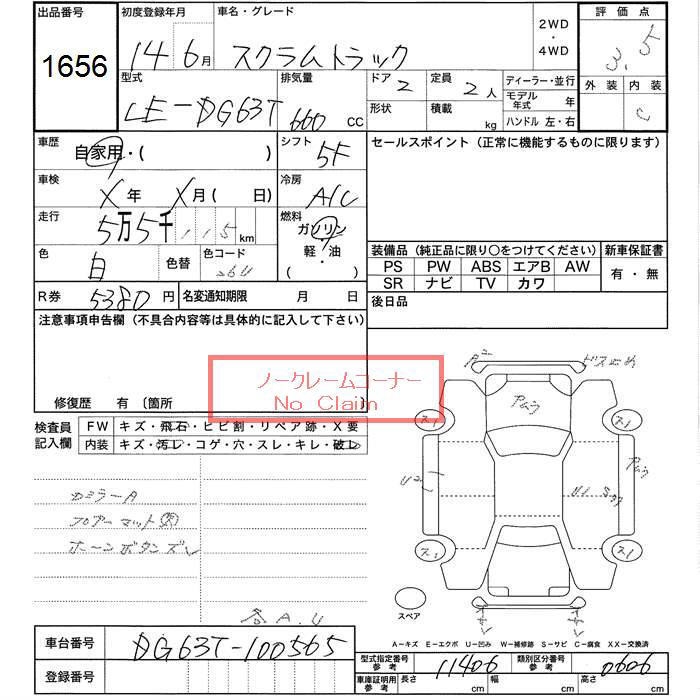 出品番号 初度登録年月 車名・グレード 2WD・4WD 評価点
1656 14 6月 スクラムトラック 3.5
型式 排気量 ドア 定員 ディーラー・並行 外装 内装
LE-DG63T 660 CC 2 2人 モデル年式 年 C
形状 積載 kg ハンドル 左・右
車歴 自家用・( ) シフト 5F セールスポイント(正常に機能するものに限ります)
車検 X年 X月( 日) 冷房 A/C
走行 5万5千115km 燃料 ガソリン
軽・油
・( )
色 白 色替 色コード 26U 装備品(純正品に限り○をつけてください) 新車保証書
PS PW ABS エアB AW 有・無
SR ナビ TV カワ
R券 5380円 名変通知期限 月 日 後日品
注意事項申告欄(不具合内容等は具体的に記入して下さい)
ノークレームコーナー
No Claim
修復歴 有〔箇所 〕
検査員記入欄 FW キズ・飛石・ヒビ割・リペア跡・X要
内装 キズ・汚レ・コゲ・穴・スレ・キレ・破レ
A2 ビス止め
Pムラ
ス1 ス1
Pムラ
U2 U1
カミラーA
フロアーマット欠
ホーンボタンズレ
ス1 ス1
スペア
各A.U
A−キズ E−エクボ U−凹み W−補修跡 S−サビ C−腐食 XX−交換済
車台番号 DG63T-100565
登録番号
型式指定番号参考 11406 類別区分番号参考 0606
車庫証明用参考 長さ cm 幅 cm 高さ cm